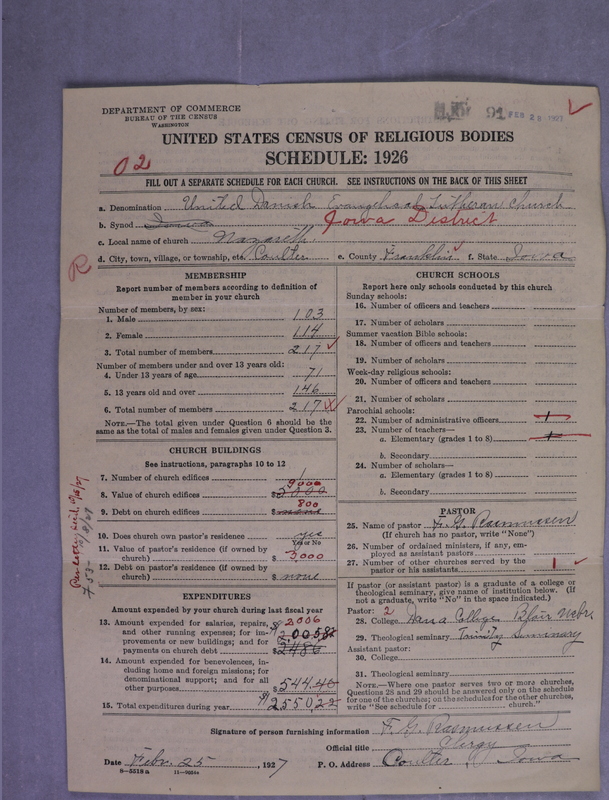 DEPARTMENT OF COMMERCE
BUREAU OF THE CENSUS
WASHINGTON
91 FEB 28 1927
UNITED STATES CENSUS OF RELIGIOUS BODIES
SCHEDULE: 1926
02
FILL OUT A SEPARATE SCHEDULE FOR EACH CHURCH. SEE INSTRUCTIONS ON THE BACK OF THIS SHEET
a. Denomination United Danish Evangelical Lutheran Church
b. Synod Iowa District
c. Local name of church Nazareth
d. City, town, village, or township, etc. Coulter e. County Franklin f. State Iowa
R
MEMBERSHIP
Report number of members according to definition of
member in your church
Number of members, by sex:
1. Male 103
2. Female 114
3. Total number of members 217
Number of members under and over 13 years old:
4. Under 13 years of age 71
5. 13 years old and over 146
6. Total number of members 217
NOTE.—The total given under Question 6 should be
the same as the total of males and females given under Question 3.
CHURCH BUILDINGS
See instructions, paragraphs 10 to 12
7. Number of church edifices 1
9000
8. Value of church edifices $
800
9. Debt on church edifices $none
10. Does church own pastor's residence? yes
Yes or No
11. Value of pastor's residence (if owned by
church) $ 3,000
12. Debt on pastor's residence (if owned by
church) $ none
EXPENDITURES
Amount expended by your church during last fiscal year
2006
13. Amount expended for salaries, repairs,
and other running expenses; for im-
provements or new buildings; and for
payments on church debt $
14. Amount expended for benevolences, in-
cluding home and foreign missions; for
denominational support; and for all
other purposes $544.40
15. Total expenditures during year $2550.22
CHURCH SCHOOLS
Report here only schools conducted by this church
Sunday schools:
16. Number of officers and teachers
17. Number of scholars
Summer vacation Bible schools:
18. Number of officers and teachers
19. Number of scholars
Week-day religious schools:
20. Number of officers and teachers
21. Number of scholars
Parochial schools:
22. Number of administrative officers 1
23. Number of teachers—
a. Elementary (grades 1 to 8) 1
b. Secondary
24. Number of scholars—
a. Elementary (grades 1 to 8)
b. Secondary
PASTOR
25. Name of pastor F. G. Rasmussen
(If church has no pastor, write "None")
26. Number of ordained ministers, if any, em-
ployed as assistant pastors
27. Number of other churches served by the
pastor or his assistants 1
If pastor (or assistant pastor) is a graduate of a college or
theological seminary, give name of institution below. (If
not a graduate, write "No" in the space indicated.)
Pastor: 2
28. College Dana College Blair Nebr.
29. Theological seminary Trinity Seminary
Assistant pastor:
30. College
31. Theological seminary
NOTE.—Where one pastor serves two or more churches,
Questions 28 and 29 should be answered only on the schedule
for one of the churches; on the schedules for the other churches,
write "See schedule for church."
Signature of person furnishing information F. G. Rasmussen
Official title Clergy
Date Febr. 25, 1927 P. O. Address Coulter, Iowa
8-5518a